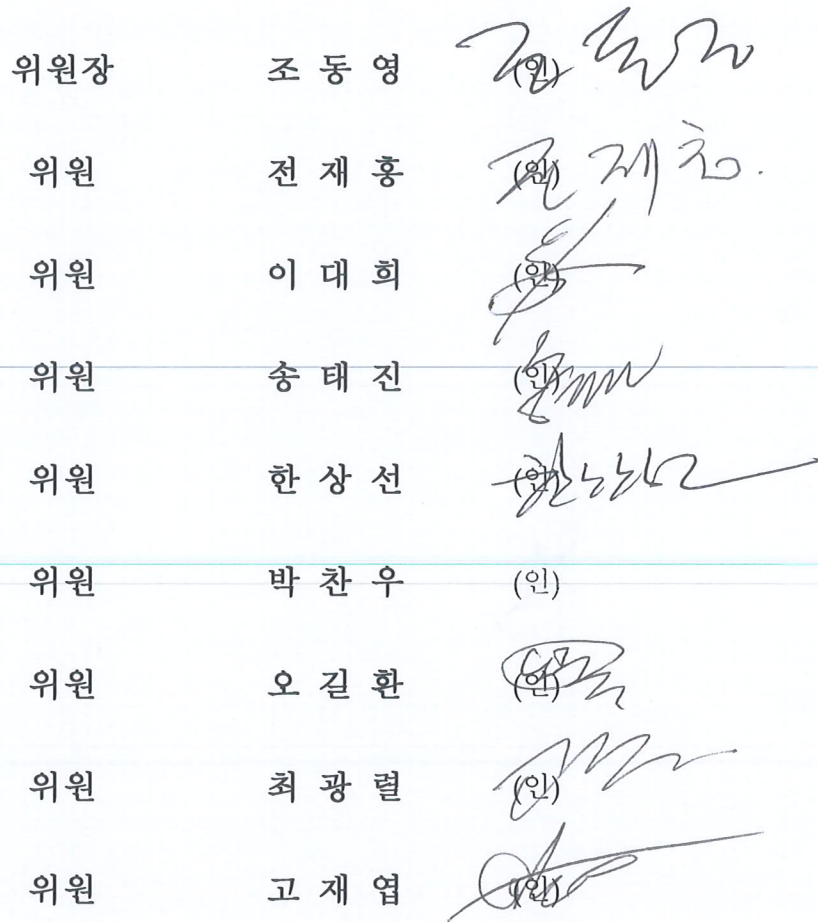 위원장 조 동 영 (인)
위원 전 재 홍 (인)
위원 이 대 희 (인)
위원 송 태 진 (인)
위원 한 상 선 (인)
위원 박 찬 우 (인)
위원 오 길 환 (인)
위원 최 광 렬 (인)
위원 고 재 엽 (인)